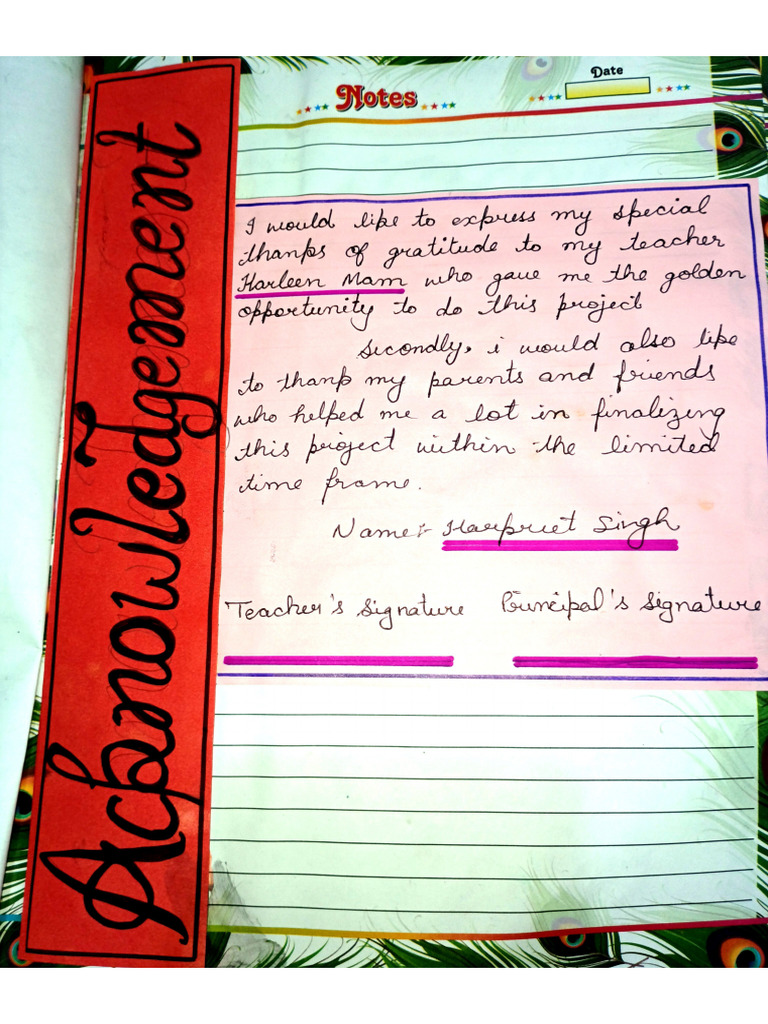 Acknowledgement
Notes
Date
I would like to express my special
thanks of gratitude to my teacher
Harleen Mam who gave me the golden
opportunity to do this project
Secondly, i would also like
to thank my parents and friends
who helped me a lot in finalizing
this project within the limited
time frame.
Name:- Harpreet Singh
Teacher's Signature Principal's Signature